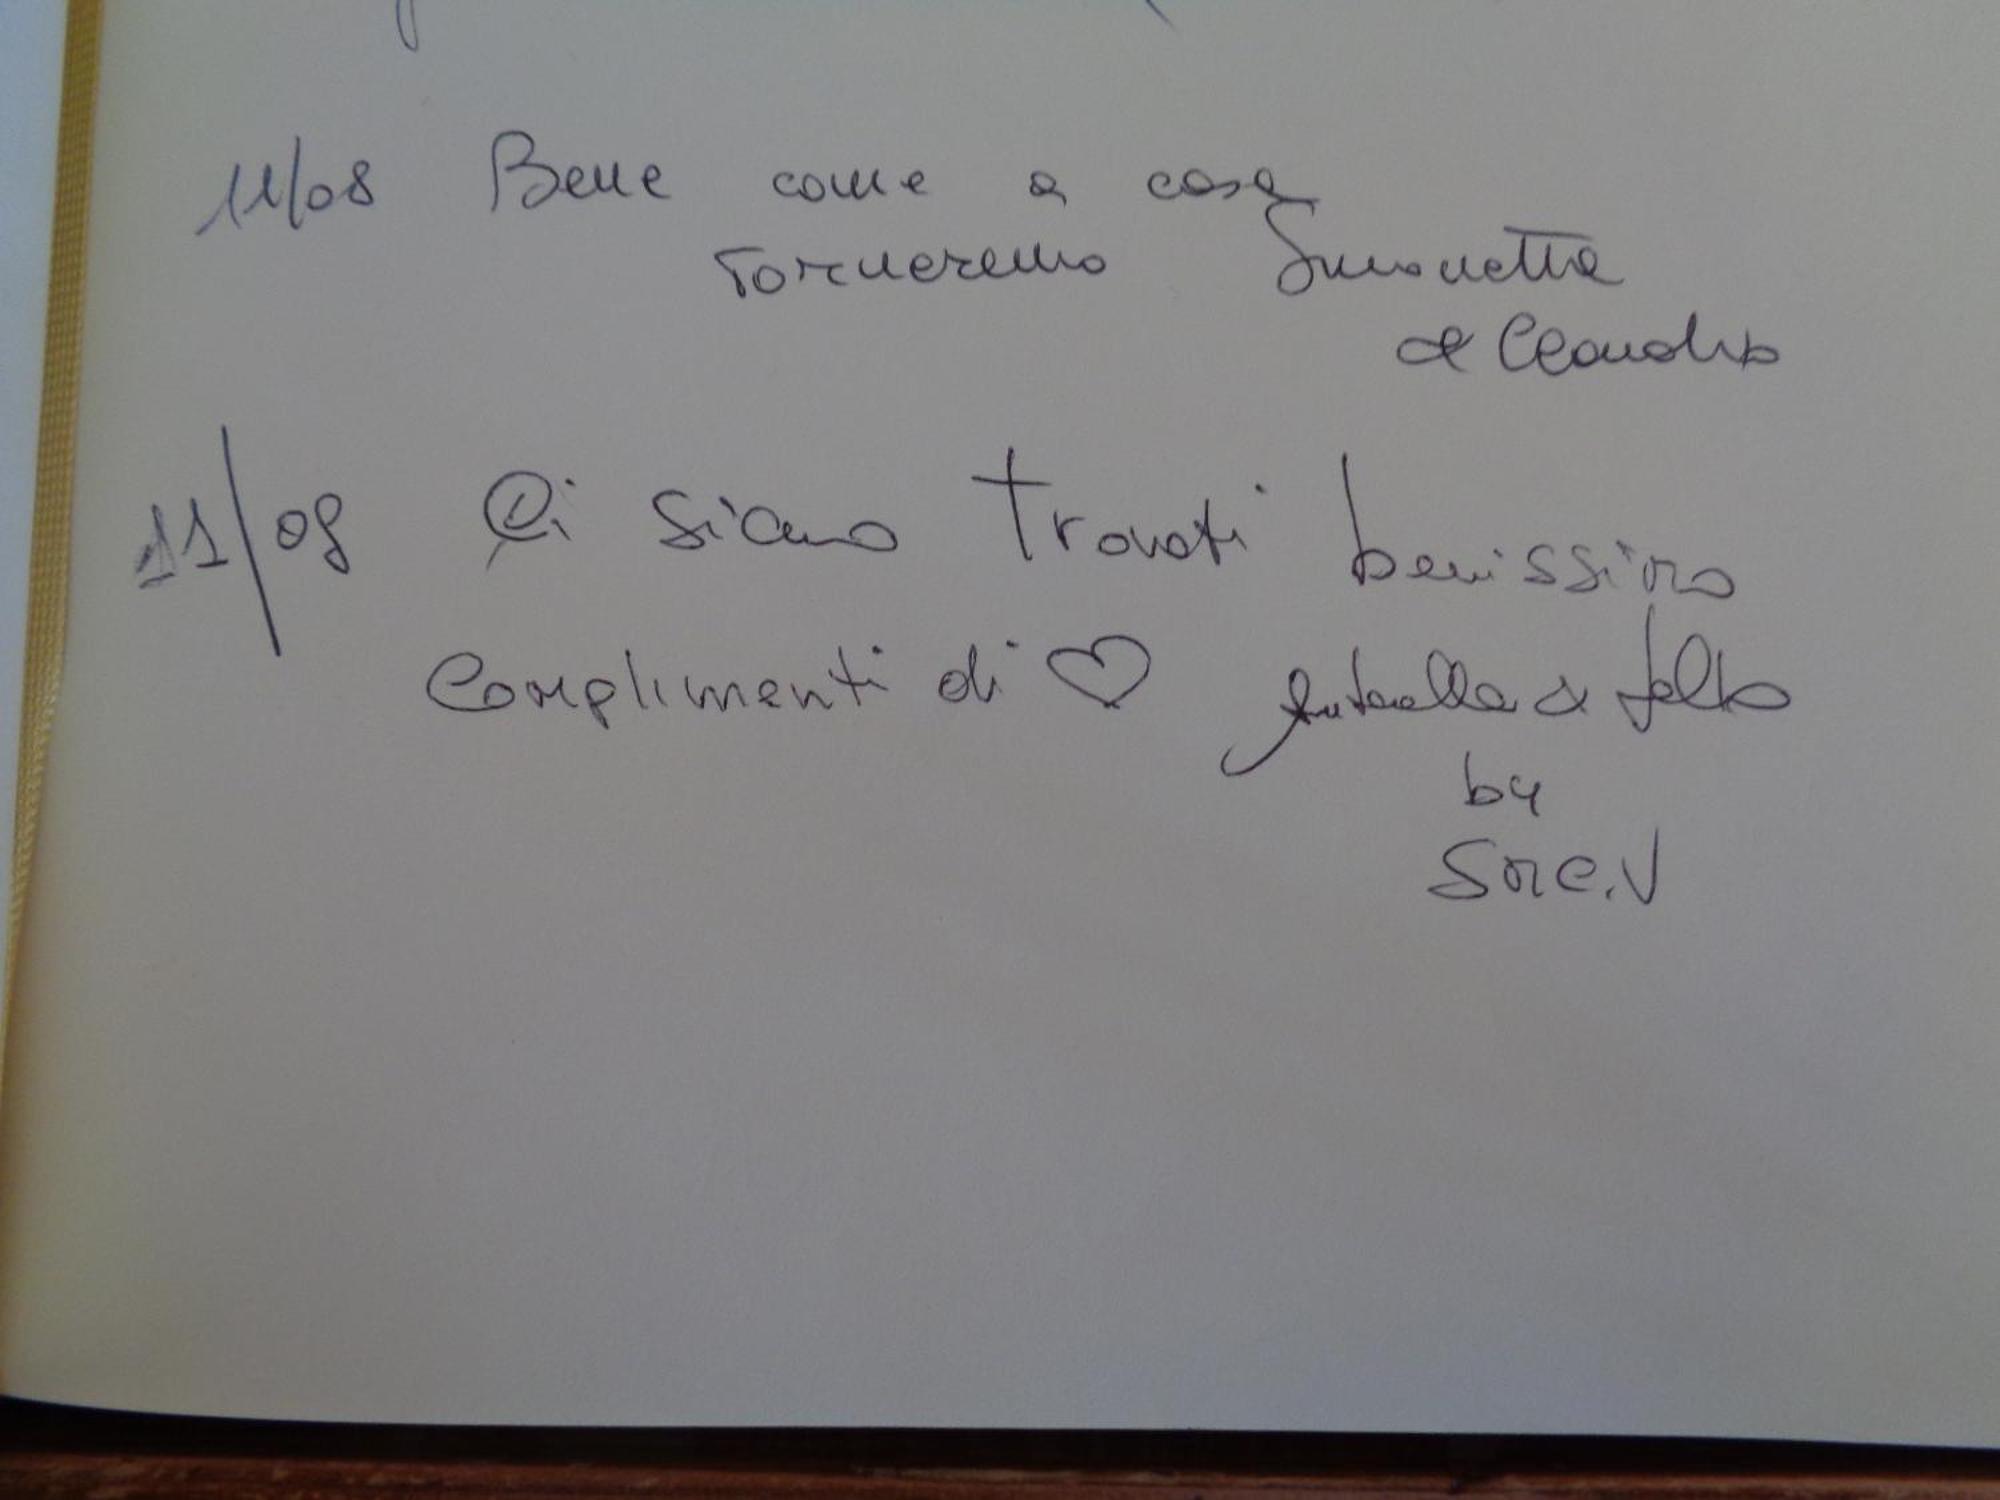 11/08 Bene come a casa
Torneremo Simonetta
e Leandro
11/08 Ci siamo trovati benissimo
Complimenti di ♡ Antonella &
by